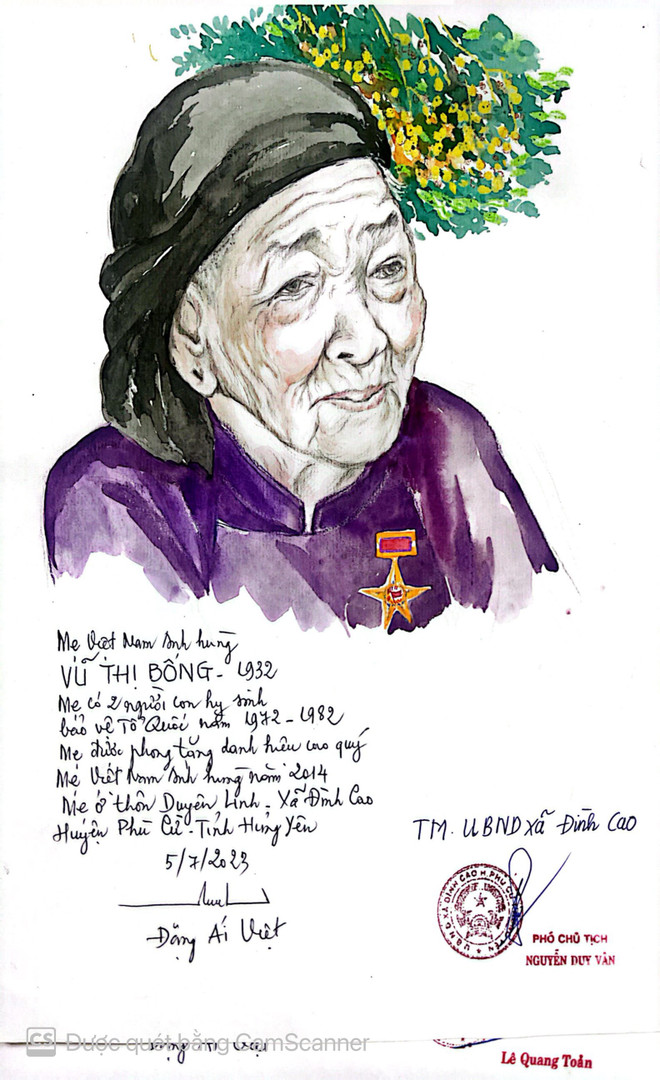 Mẹ Việt Nam Anh hùng
VŨ THỊ BỐNG - 1932
Mẹ có 2 người con hy sinh
bảo vệ Tổ Quốc năm 1972 - 1982
Mẹ được phong tặng danh hiệu cao quý
Mẹ Việt Nam Anh hùng năm 2014
Mẹ ở thôn Duyên Linh - Xã Đình Cao
Huyện Phù Cừ - Tỉnh Hưng Yên
5/7/2023
Đặng Ái Việt
TM. UBND xã Đình Cao
U.B.N.D XÃ ĐÌNH CAO H.PHÙ CỪ
PHÓ CHỦ TỊCH
NGUYỄN DUY VÂN
CS Được quét bằng CamScanner
Lê Quang Toản